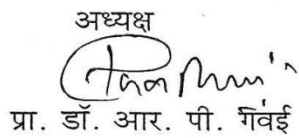 अध्यक्ष
प्रा. डॉ. आर. पी. गंवई